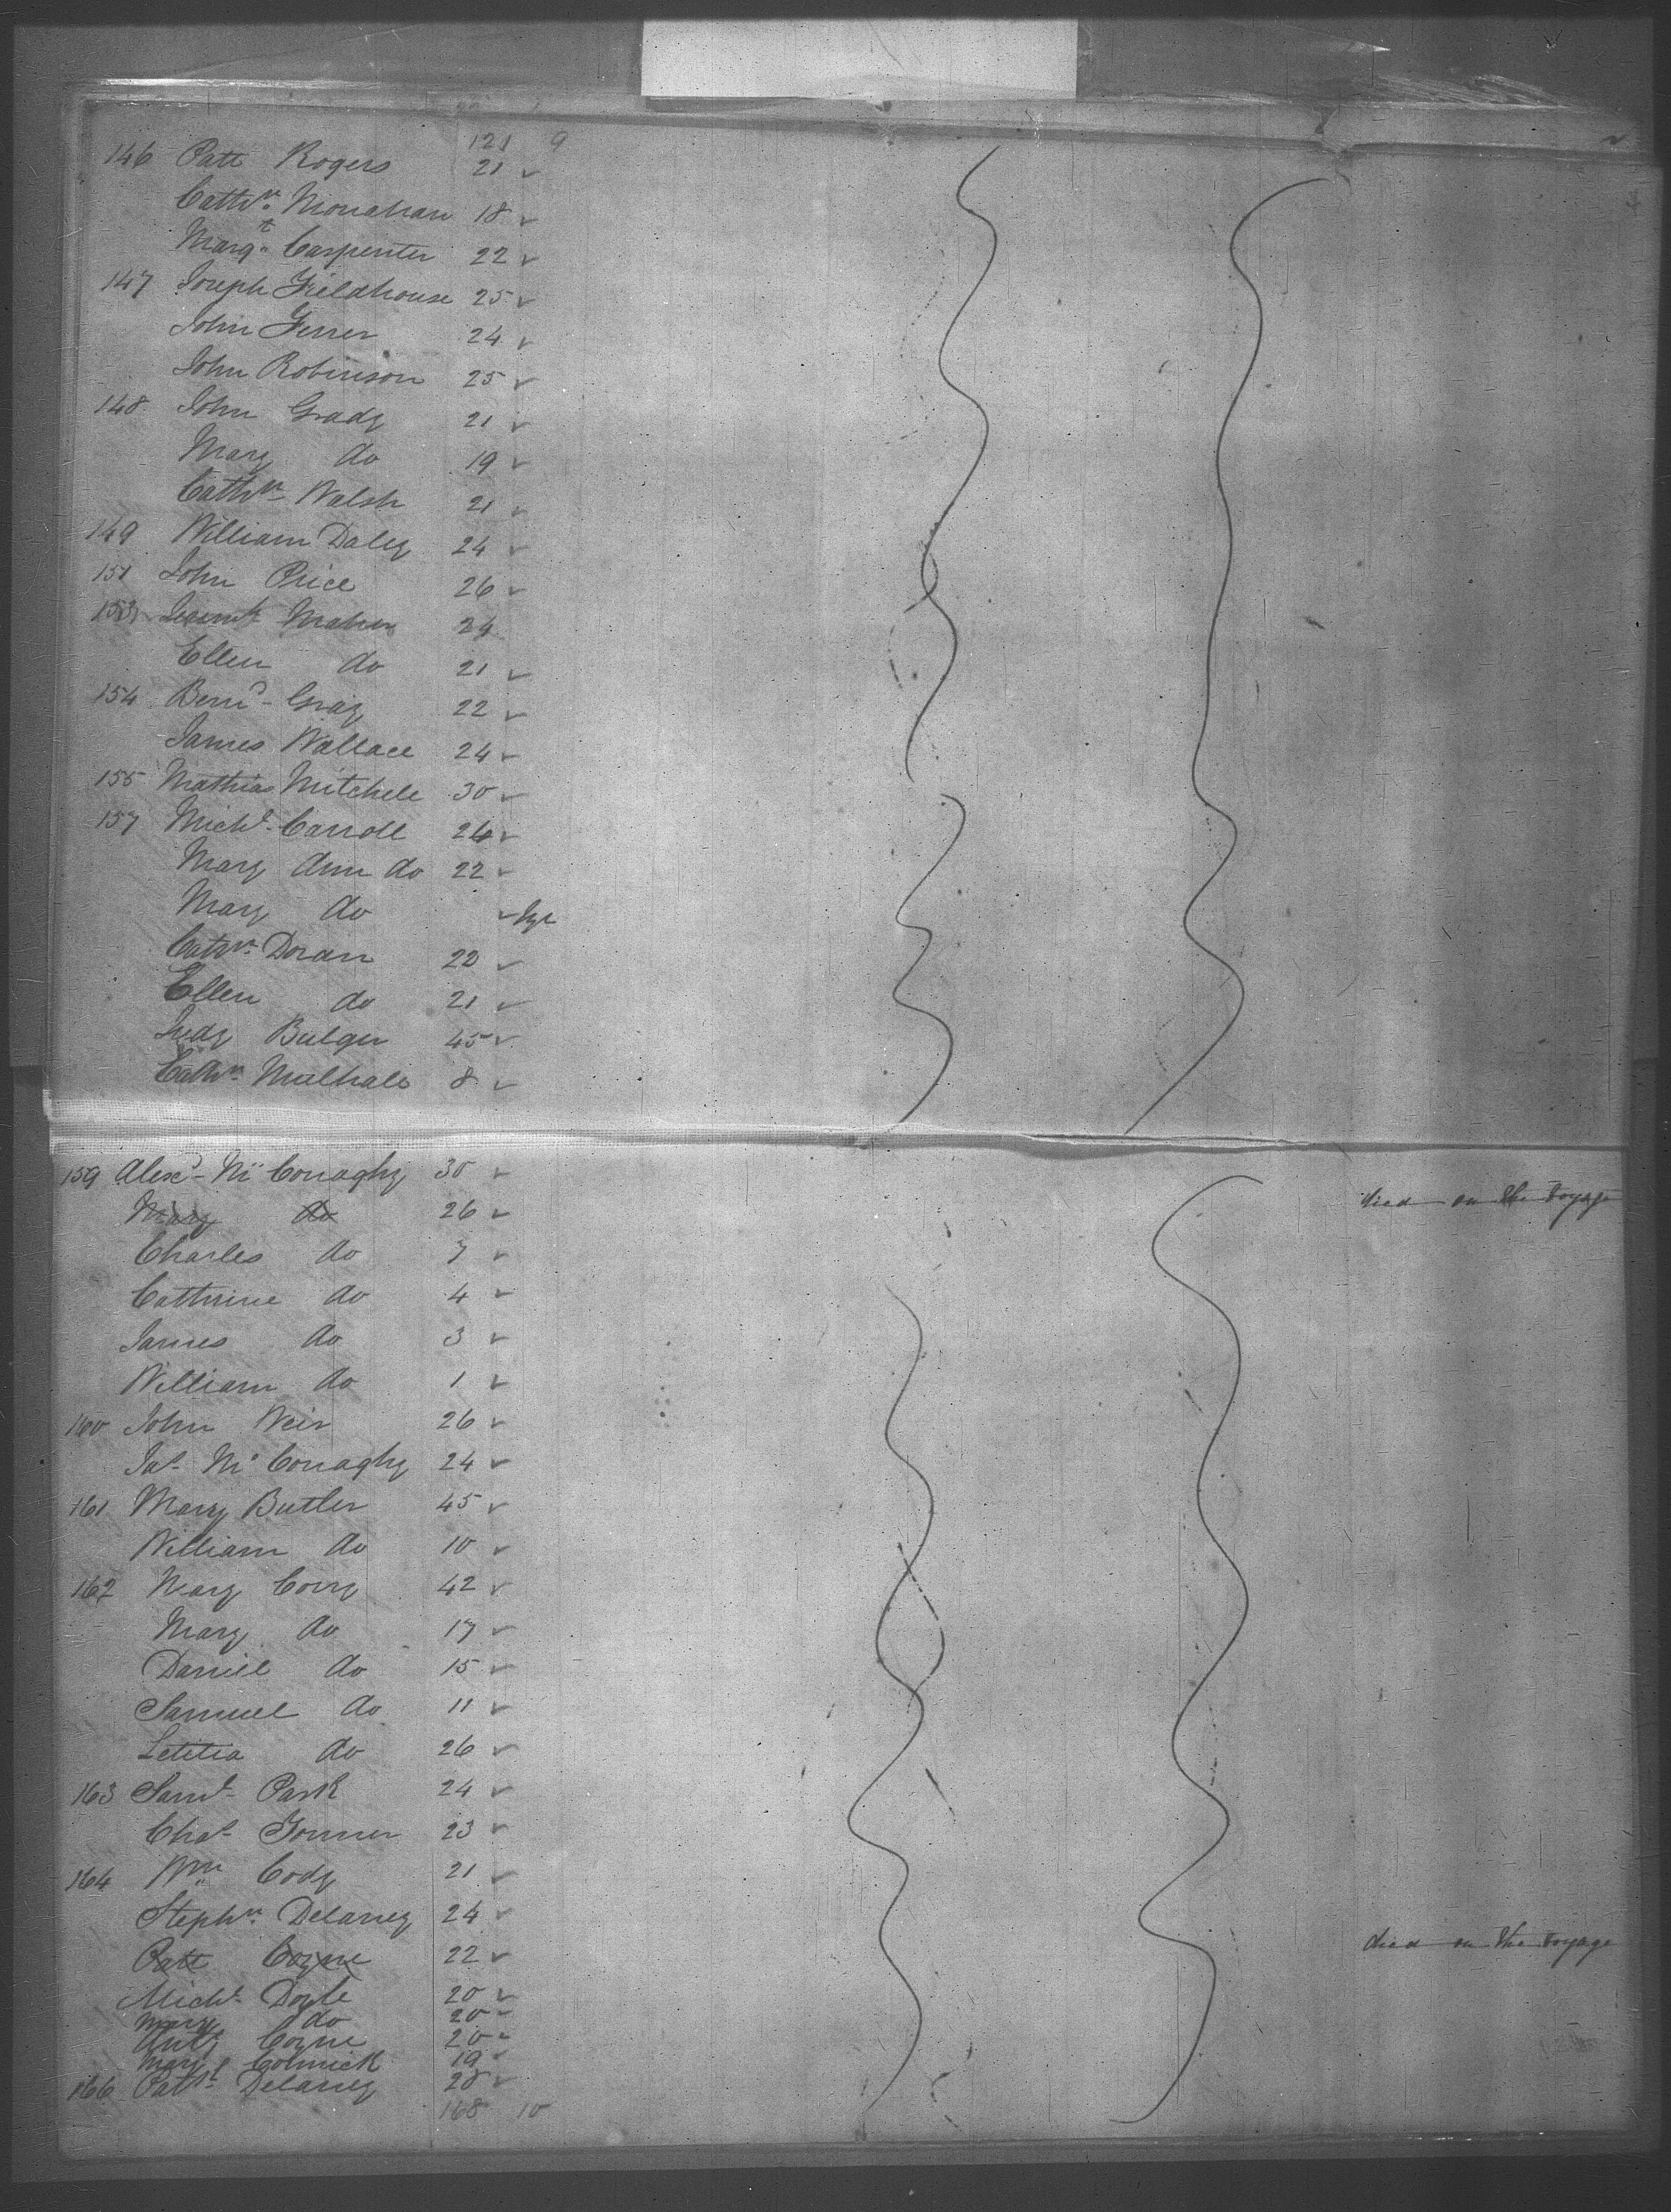 121 9
146 Patt Rogers 21
Cathn. Monahan 18
Margt. Carpenter 22
147 Joseph Fieldhouse 25
John Ferrer 24
John Robinson 25
148 John Grady 21
Mary do 19
Cathn. Walsh 21
149 William Daley 24
151 John Price 26
153 Maher 24
Ellen do 21
154 Bernd. Gray 22
James Wallace 24
155 Mathias Mitchele 30
157 Michl. Carroll 26
Mary Ann do 22
Mary do
Cathn. Doran 20
Ellen do 21
Judy Bulger 45
Cathn. Mulhale 8
159 Alexr. Mc Conaghy 30 died on the voyage
Mary do 26
Charles do 7
Cathrine do 4
James do 3
William do 1
160 John Weir 26
Jas. Mc Conaghy 24
161 Mary Butler 45
William do 10
162 Mary Corry 42
Mary do 17
Daniel do 15
Samuel do 11
Letitia do 26
163 Saml. Park 24
Chas. 23
164 Wm Cody 21
Stephn. Delaney 24
Patt Coyne 22 died on the voyage
Michl. Doyle 20
Mary do 20
Anty Coyne 20
Mary Colmick 19
166 Patt Delaney 20
168 10